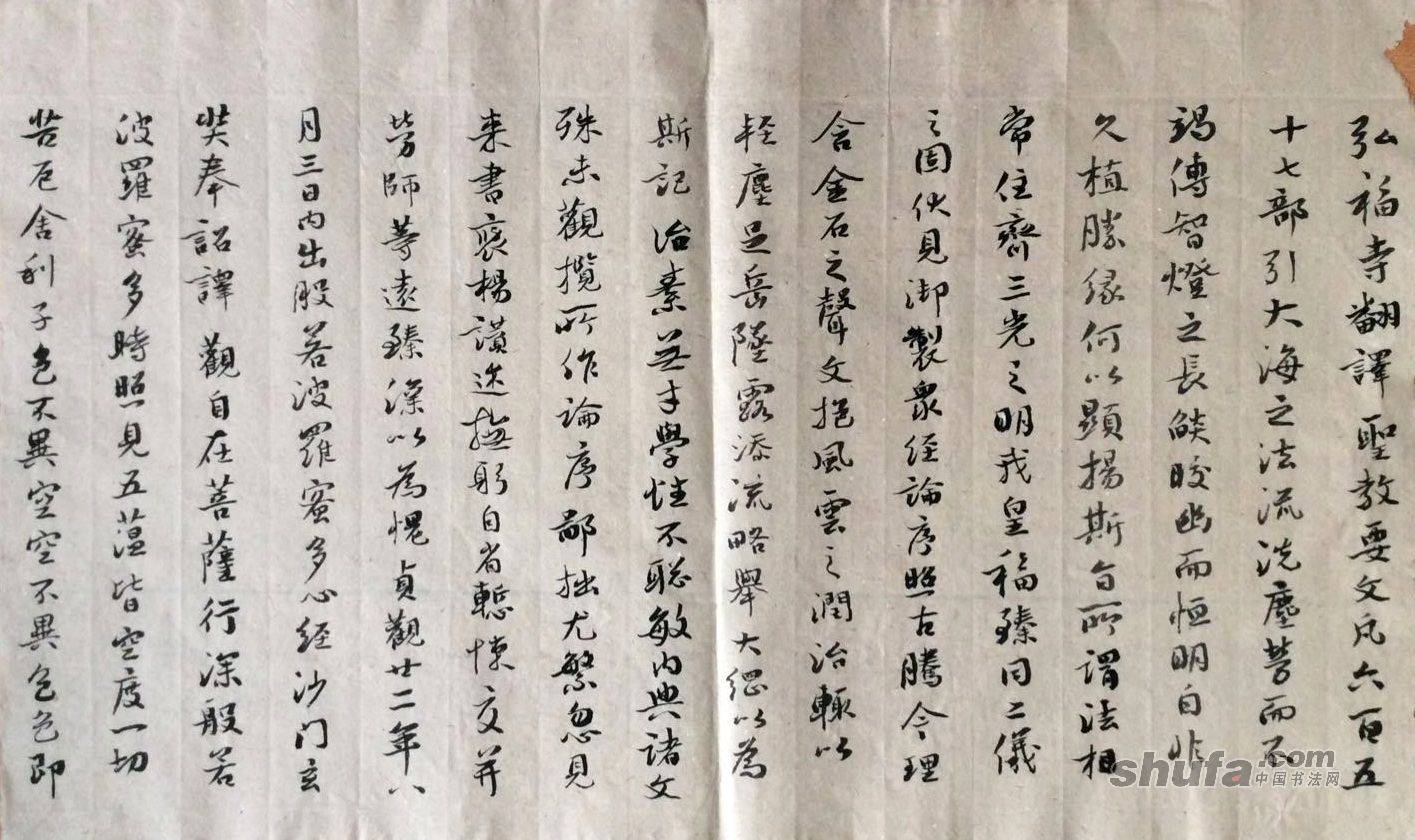 弘福寺翻譯聖教要文凡六百五
十七部引大海之法流洗塵勞而不
竭傳智燈之長燄皎幽而恒明自非
久植勝緣何以顯揚斯旨所謂法相
常住齊三光之明我皇福臻同二儀
之固伏見御製眾經論序照古騰今理
含金石之聲文抱風雲之潤治輒以
輕塵足岳墜露添流略舉大綱以為
斯記治素無才學性不聡敏內典諸文
殊未觀攬所作論序鄙拙尤繁忽見
來書褒揚讚述撫躬自省慙悚交并
勞師等遠臻深以為愧貞觀廿二年八
月三日內出般若波羅蜜多心經沙門玄
奘奉詔譯觀自在菩薩行深般若
波羅蜜多時照見五蕰皆空度一切
苦厄舍利子色不異空空不異色色即
shufa.com
中国书法网